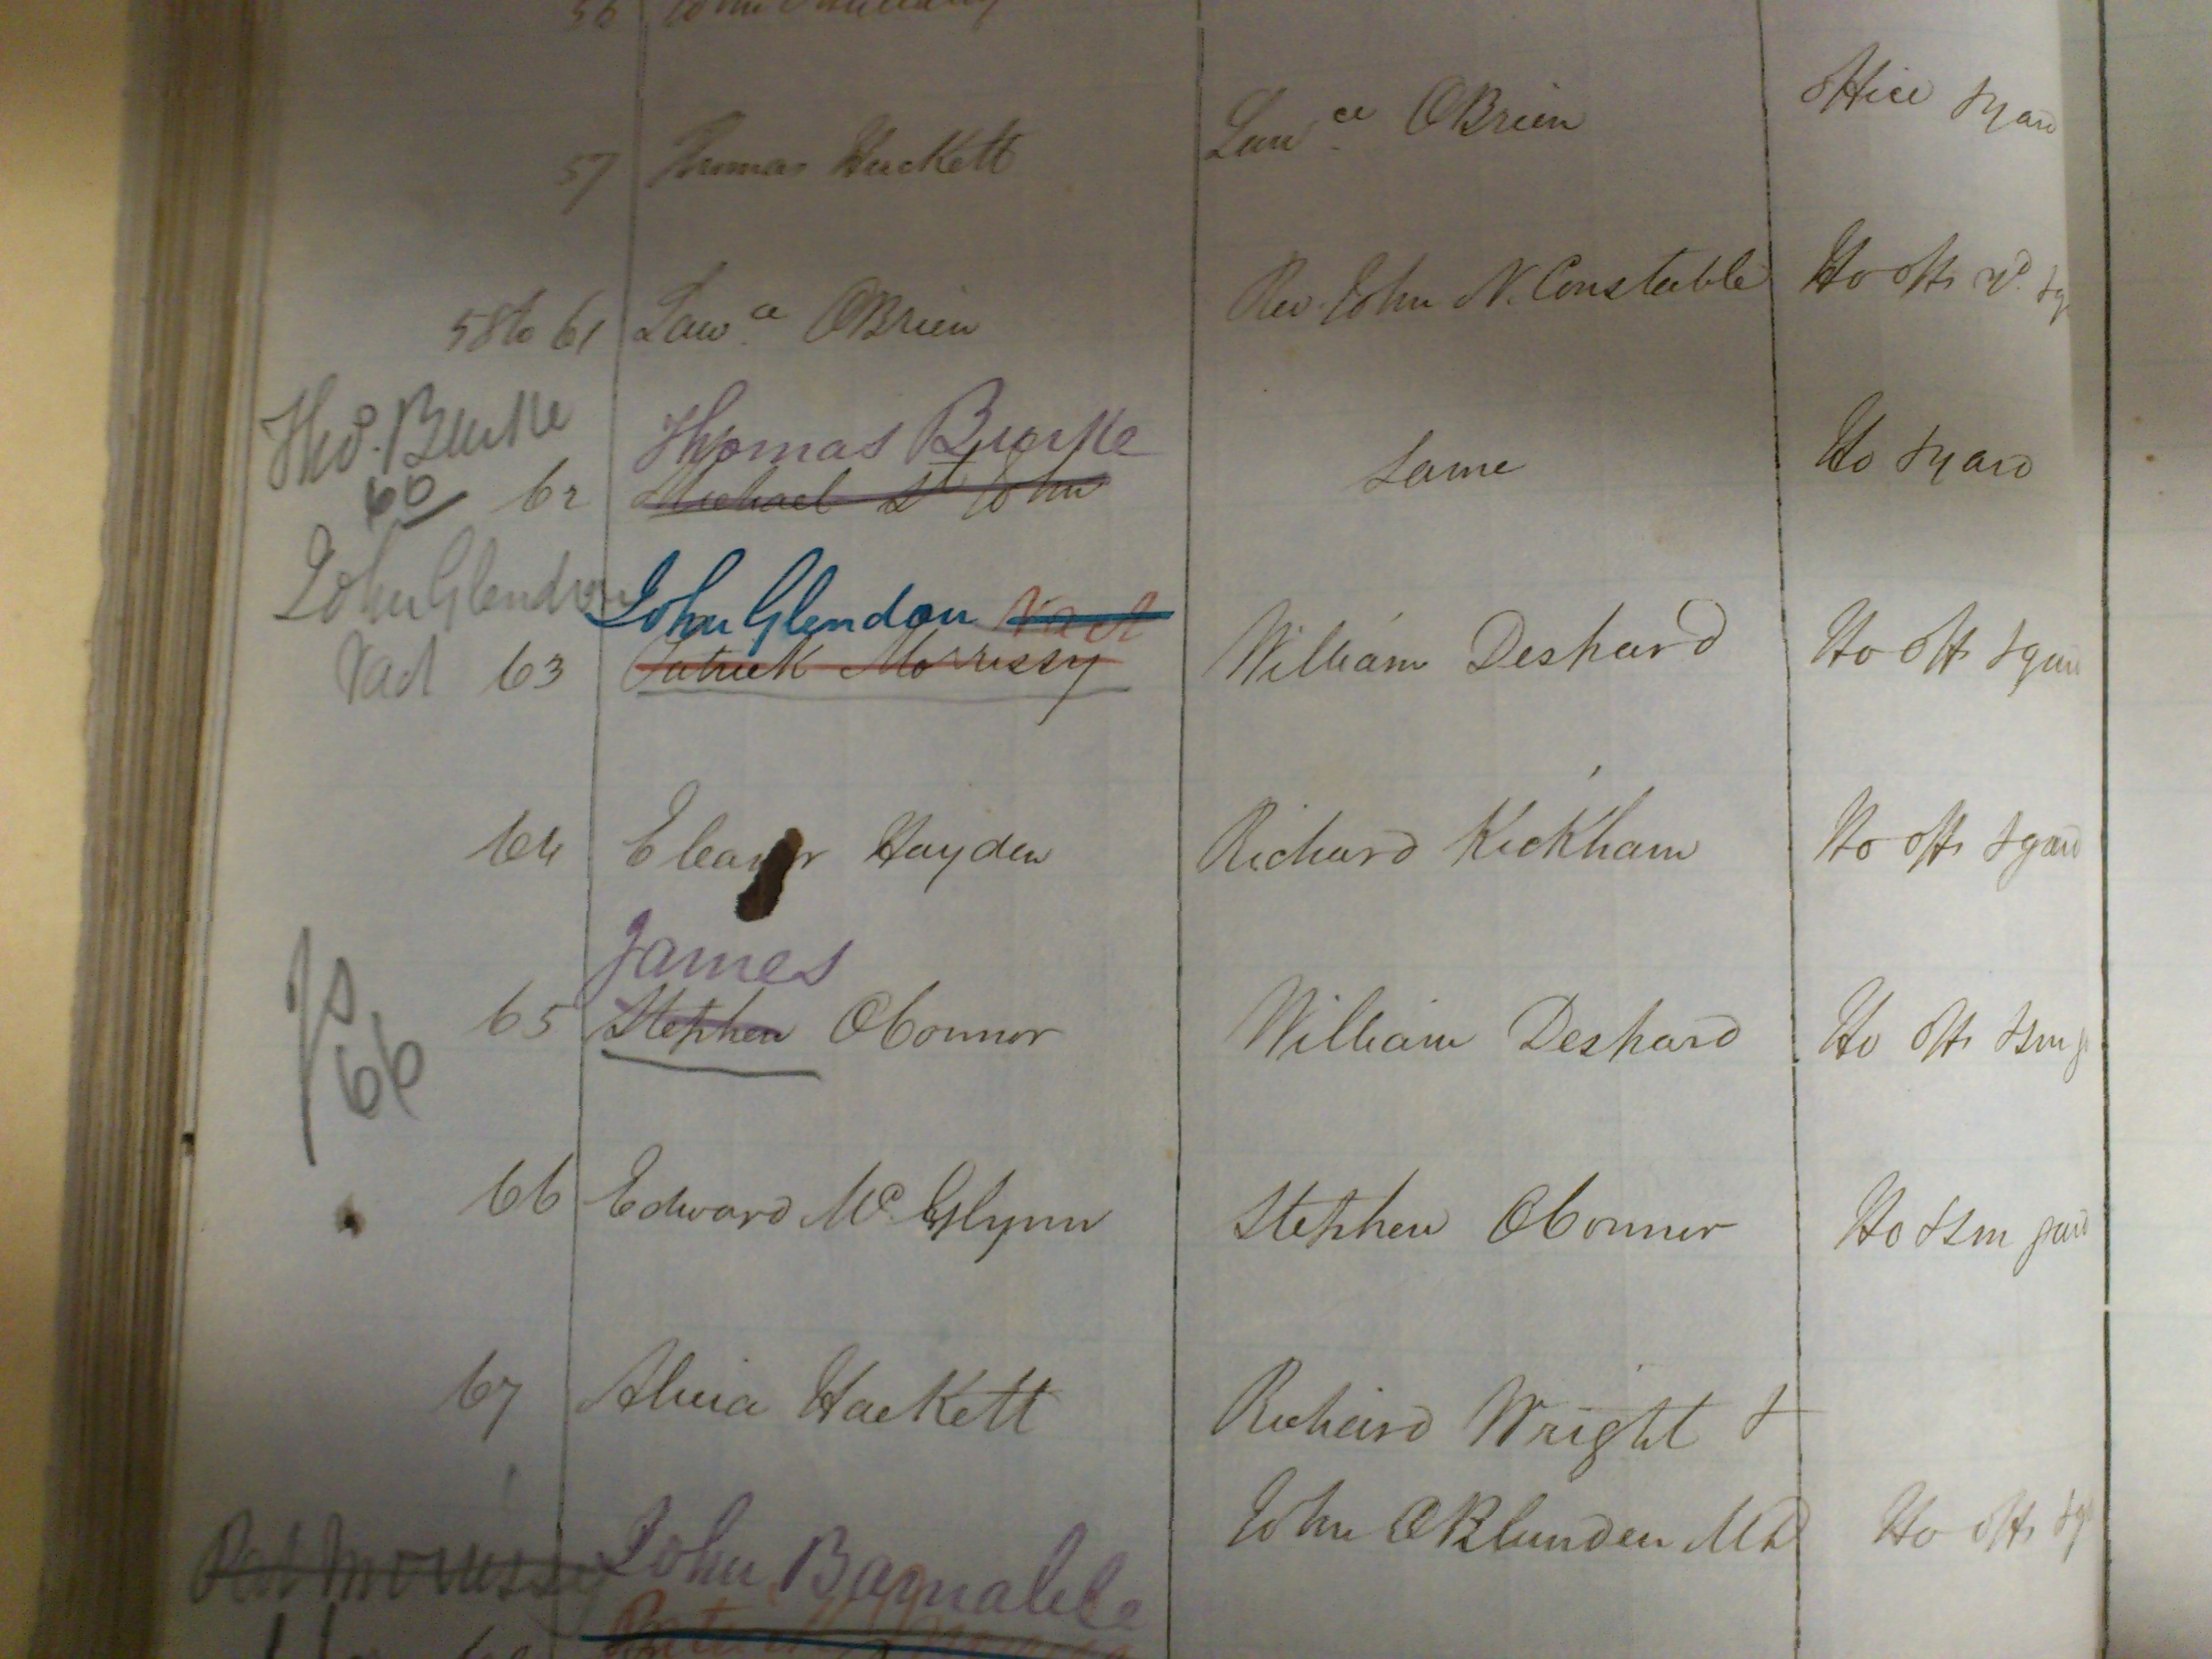 56 John
57 Thomas Hackett Law.ce OBrien Office & yard
58 to 61 Law.ce OBrien Rev. John N. Constable Ho offs yd. &
Tho.s Burke Thomas Burke
60 62 Michael St John same Ho & yard
John Glendon John Glendon Vact
Vact 63 Patrick Morrissy William Deshard Ho offs & gard
64 Eleanor Hayden Richard Kickham Ho offs & gard
James
Js 65 Stephen OConnor William Deshard Ho offs & sm g
66
66 Edward McGlynn Stephen OConnor Ho & sm gard
67 Alicia Hackett Richard Wright &
John OBlunden MD Ho offs &
Pat Morrissy John Barnable
Patrick